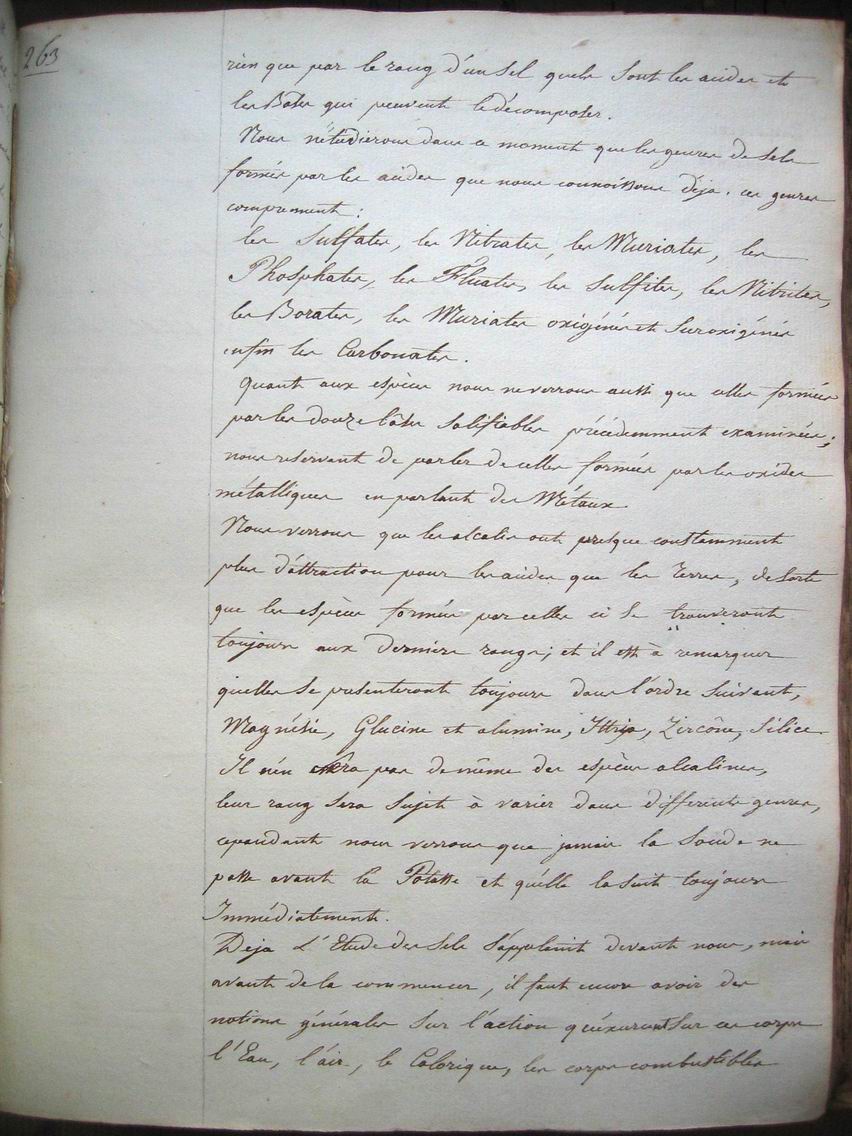 263
rien que par le rang d'un sel quels sont les acides et
les Bases qui peuvent le décomposer.
Nous n'étudierons dans ce moment que les genres de sels
formés par les acides que nous connoissons déja. ces genres
comprennent :
les Sulfates, les Nitrates, les Muriates, les
Phosphates, les Fluates, les Sulfites, les Nitrites,
les Borates, les Muriates oxigénés et Suroxigénés
enfin les Carbonates.
Quant aux espèces nous ne verrons aussi que celles formées
par les douze bases salifiables précédemment examinées ;
nous reservant de parler de celles formées par les oxides
métalliques en parlant des Métaux.
Nous verrons que les alcalis ont presque constamment
plus d'attraction pour les acides que les Terres, de sorte
que les espèces formées par celles ci se trouveront
toujours aux derniers rangs ; et il est à remarquer
quelles se presenteront toujours dans l'ordre suivant,
Magnésie, Glucine et alumine, Ittria, Zircône, Silice
Il n'en sera pas de même des espèces alcalines,
leur rang sera sujet à varier dans differents genres,
cependant nous verrons que jamais la Soude ne
passe avant la Potasse et qu'elle la suit toujours
Immédiatement.
Deja L'Etude des Sels s'applanit devant nous, mais
avant de la commencer, il faut encore avoir des
notions générales sur l'action qu'exercent sur ces corps
l'Eau, l'air, le Calorique, les corps combustibles